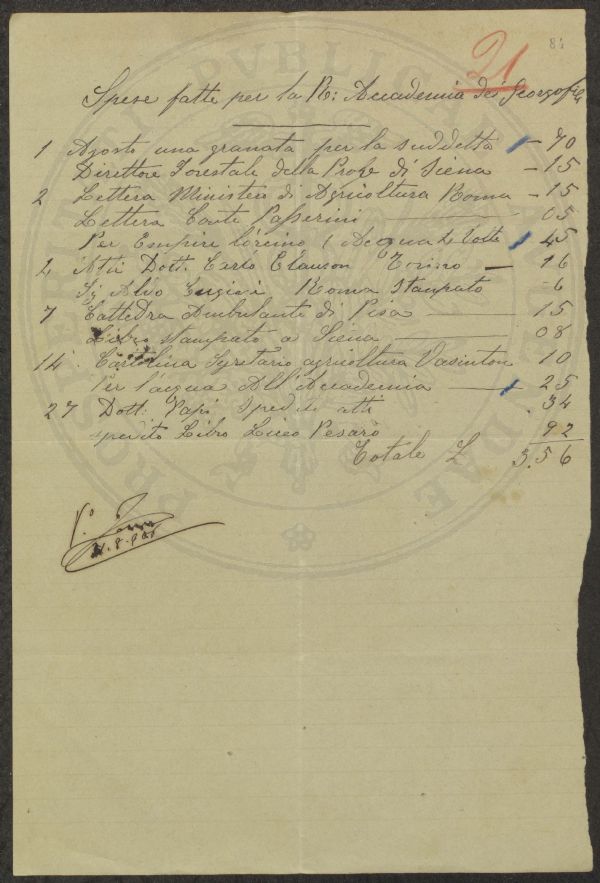 21
84
Spese fatte per la R: Accademia dei Georgofili
1 Agosto una granata per la suddetta - 70
Direttore Forestale della Prove di Siena - 15
2 Lettera Ministero di Agricoltura Roma - 15
Lettera Conte Passerini 05
Per Empire lorcino 45
4 Atti Dott. Carlo Torino 16
Sig Aldo Roma Stampato - 6
7 Cattedra Ambulante di Pisa 15
Libro stampato a Siena 08
14 Cartolina Segretario agricoltura Vasinton 10
Per l'acqua All'Accademia 25
27 Dott: Papi Spedito atti 34
spedito Libro Liceo Pesaro 92
Totale L 3.56
V.°
31.8.905
PVBLICAE
PROSPERITATI
AVGENDAE